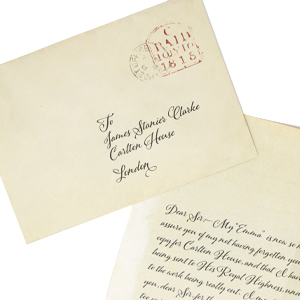 C
1815
To
James Stanier Clarke
Carlton House
London
Dear Sir,— My "Emma" is now so
assure you of my not having forgotten you
copy for Carlton House, and that I have
being sent to His Royal Highness, und
to the work being really out. I
you, dear Sir, for th